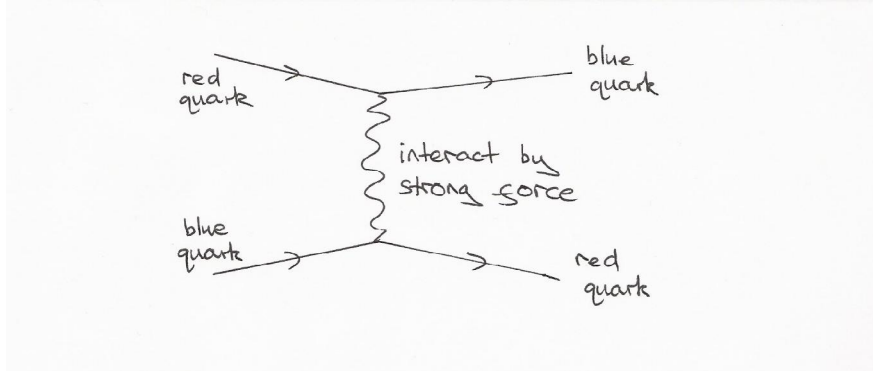 red
quark
blue
quark
interact by
strong force
blue
quark
red
quark